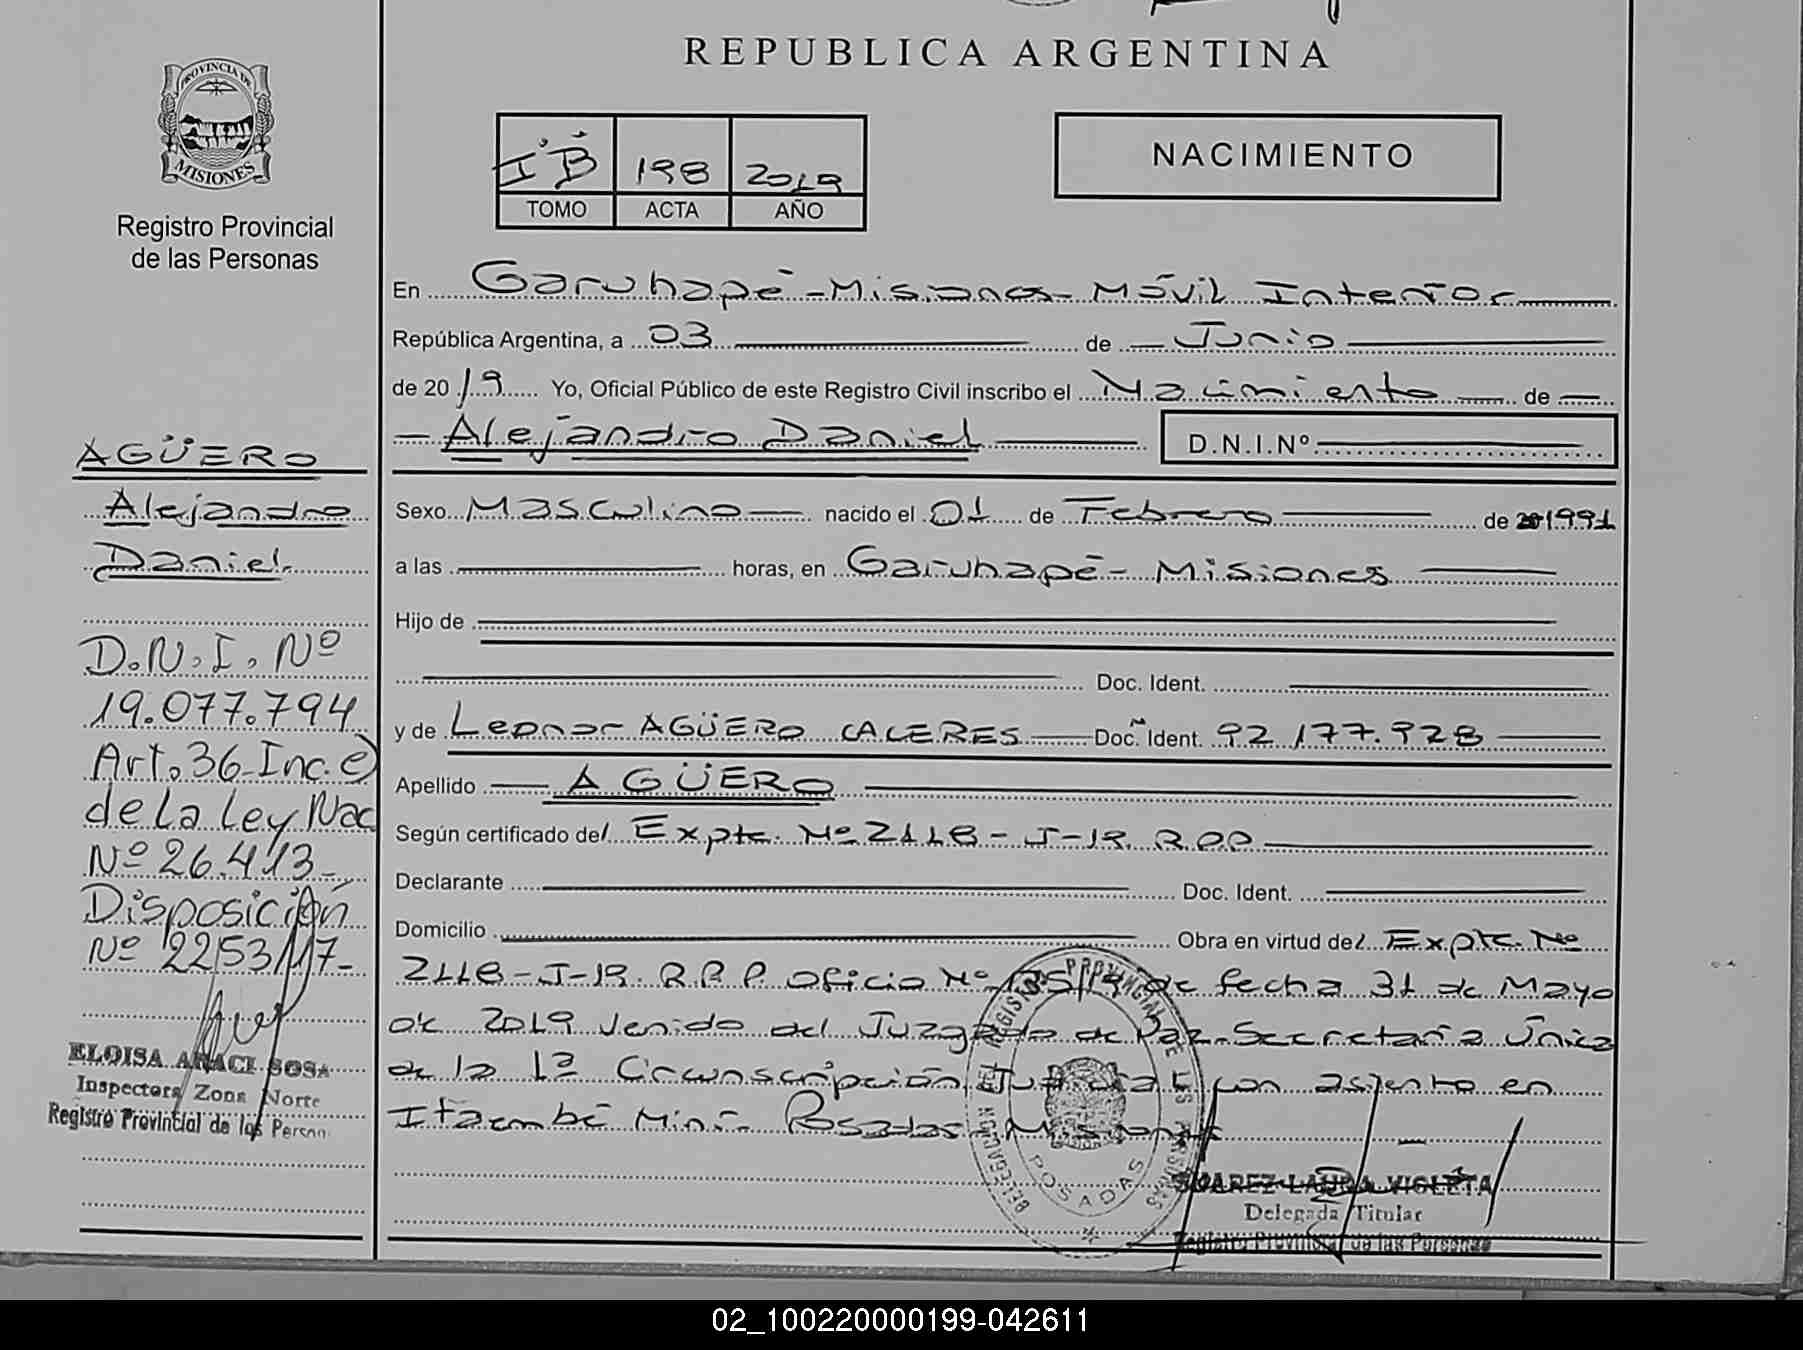 REPUBLICA ARGENTINA
PROVINCIA DE
MISIONES
Registro Provincial
de las Personas
I°B 198 2019
TOMO ACTA AÑO
NACIMIENTO
En Garuhapé - Misiones - Móvil Interior
República Argentina, a 03 de Junio
de 2019 Yo, Oficial Público de este Registro Civil inscribo el Nacimiento de
Alejandro Daniel D.N.I.Nº
Sexo Masculino nacido el 01 de Febrero de 1991
a las horas, en Garuhapé - Misiones
Hijo de
Doc. Ident.
y de Leonor AGÜERO CACERES Doc. Ident. 92.177.928
Apellido AGÜERO
Según certificado del Expte. Nº 2118-J-19. R.P.P
Declarante Doc. Ident.
Domicilio Obra en virtud del Expte. Nº
2118-J-19. R.P.P. Oficio Nº 135/19 de fecha 31 de Mayo
de 2019 venido del Juzgado de Paz - Secretaría Única
de la 1ª Circunscripción Judicial con asiento en
Itaembé Miní - Posadas - Misiones
AGÜERO
Alejandro
Daniel
D.N.I. Nº
19.077.794
Art. 36-Inc. e)
de la Ley Nac
Nº 26.413-
Disposición
Nº 2253/17-
ELOISA ARACI SOSA
Inspectora Zona Norte
Registro Provincial de las Person
DELEGACION DEL REGISTRO PROVINCIAL DE LAS PERSONAS
POSADAS
SUAREZ LAURA VIOLETA
Delegada Titular
Registro Provincial de las Personas
02_100220000199-042611